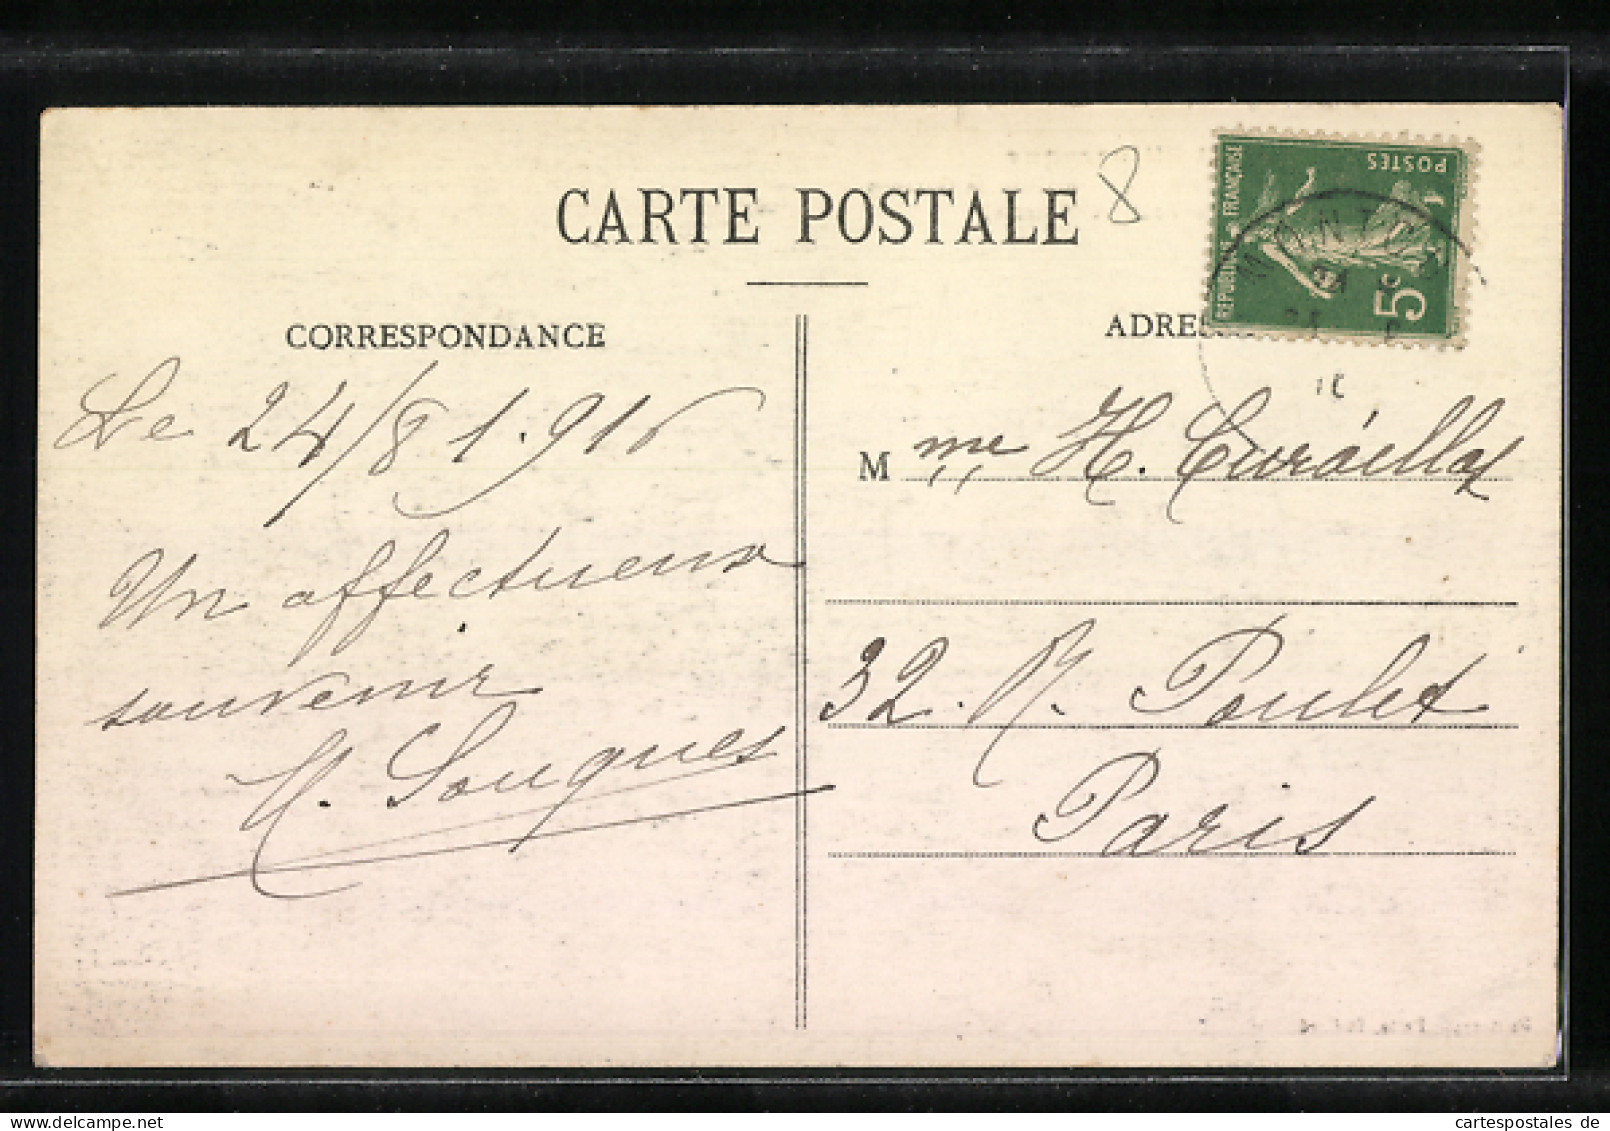 CARTE POSTALE
8
CORRESPONDANCE
Le 24/8 1.916
Un affectueux
souvenir
H. Souques
REPUBLIQUE FRANÇAISE
POSTES
5c
ADRES
Mme H.
32. R. Poulet
Paris
cartespostales de